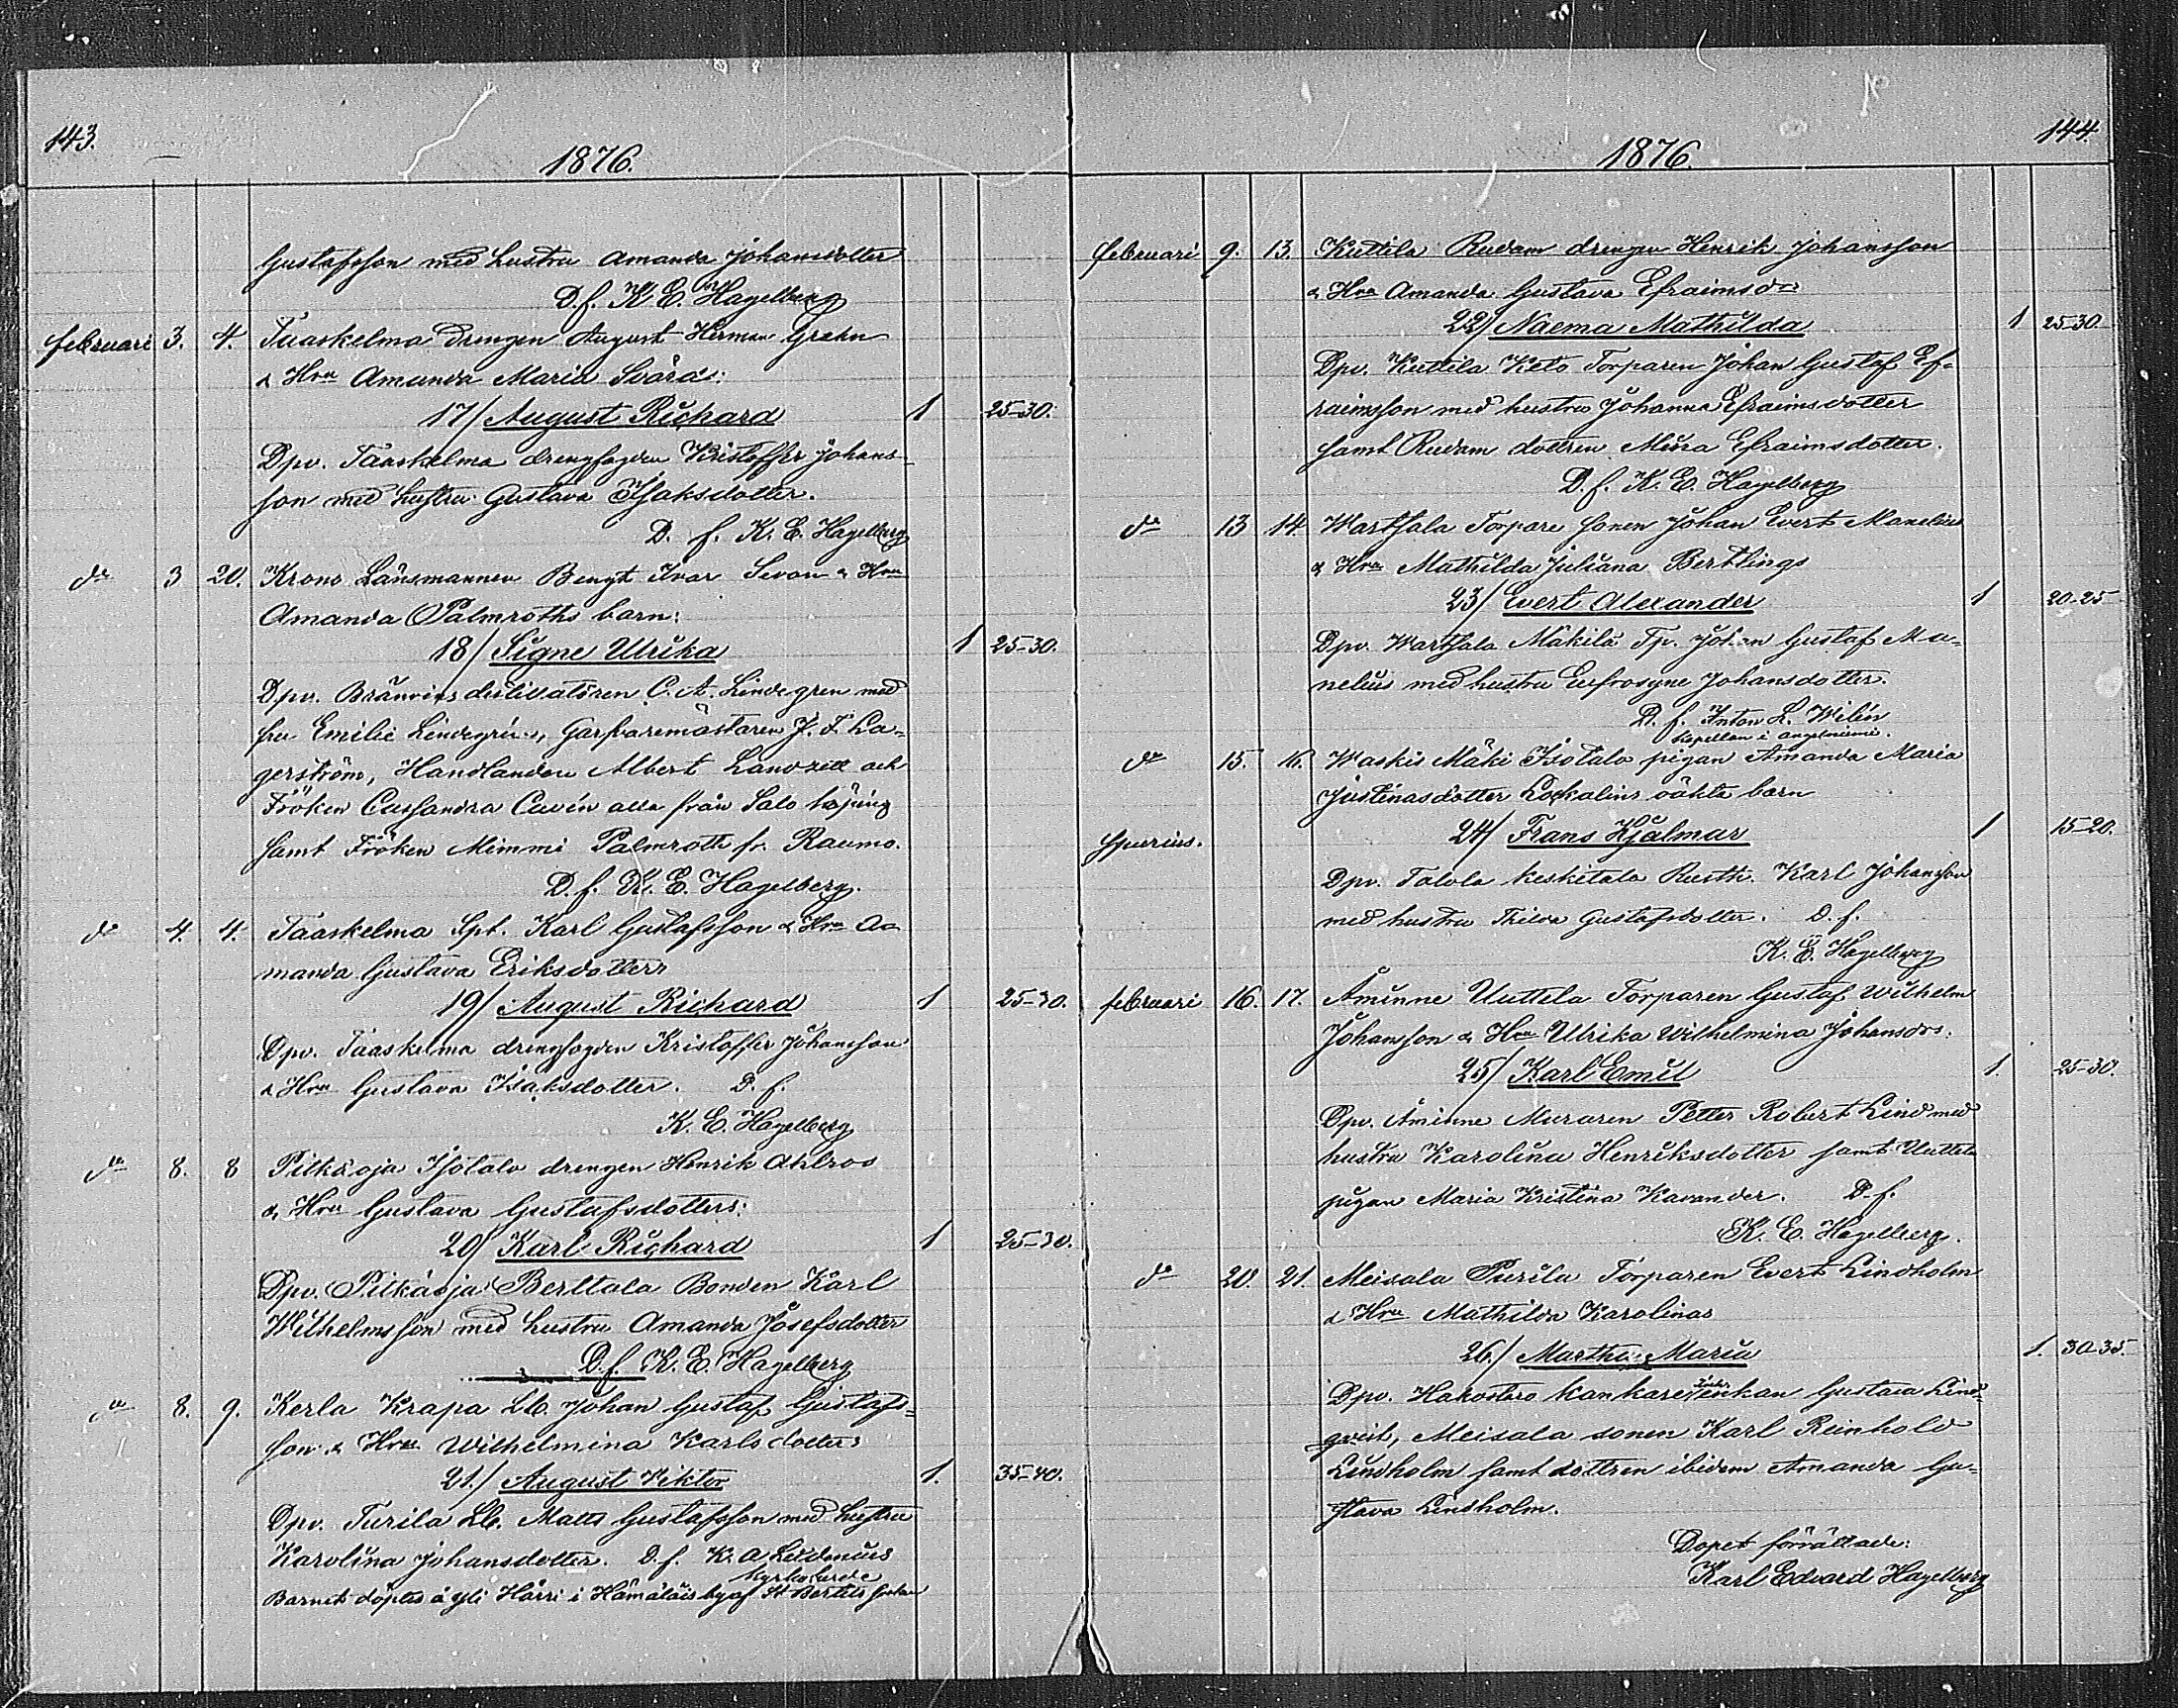 143.
1876.
Gustafsson med hustru Amanda Johansdotter
D.f. K. E. Hagelberg
februari 3. 4. Taaskelma Drengen August Herman Grehn
& Hru Amanda Maria Svärds:
17/ August Richard 1 25-30.
Dpv. Taaskelma drengfogden Kristoffer Johans-
son med hustru Gustava Isaksdotter.
D. f. K. E. Hagelberg
do 3 20. Krono Länsmannen Bengt Ivar Sevon & Hru
Amanda Palmroths barn:
18/ Signe Ulrika 1 25-30.
Dpv. Bränvins destillatören C. A. Lindegren med
fru Emilie Lindegren, Garfvaremästaren J. F. La-
gerström, Handlanden Albert Landzett och
Fröken Cassandra Cavén alla från Salo köping
samt Fröken Mimmi Palmroth fr. Raumo.
D.f. K. E. Hagelberg.
do 4. 4. Taaskelma Spt. Karl Gustafsson & Hru A-
manda Gustava Eriksdotters
19/ August Richard 1 25-30.
Dpv. Taaskelma drengfogden Kristoffer Johansson
& Hru Gustava Isaksdotter. D. f.
K. E. Hagelberg
do 8. 8 Pitkäoja Isotalo drengen Henrik Ahlroos
& Hru Gustava Gustafsdotters:
20/ Karl Richard 1 25-30.
Dpv. Pitkäoja Berttala Bonden Karl
Wilhelmsson med hustru Amanda Josefsdotter
D.f. K. E. Hagelberg
do 8. 9. Kerla Krapa Lb. Johan Gustaf Gustafs-
son & Hru Wilhelmina Karlsdotters
21./ August Viktor 1. 35-40.
Dpv. Turila Lb. Matts Gustafsson med hustru
Karolina Johansdotter. D.f. K. A Leidenius
Kyrkoherde
Barnet döptes å Yli Härri i Hämäläis by af St Bertils socken
144.
1876.
februari 9. 13. Kuttila Rudam drengen Henrik Johansson
& Hru Amanda Gustava Efraimsdrs
22/ Naema Mathilda 1 25-30.
Dpv. Kuttila Keto Torparen Johan Gustaf Ef-
raimsson med hustru Johanna Efraimsdotter
samt Rudam dottren Miina Efraimsdotter.
D. f. K. E. Hagelberg
do 13 14. Wartsala Torpare sonen Johan Evert Manelius
& Hru Mathilda Juliana Bertlings
23/ Evert Alexander 1 20-25
Dpv. Wartsala Mäkilä Tp. Johan Gustaf Ma-
nelius med hustru Eufrosyne Johansdotter.
D. f. Anton L. Wilén
Kapellan i Angelniemi.
do 15. 16. Waskis Mäki Isotalo pigan Amanda Maria
Justinasdotter Lockalins oäkta barn
spurius. 24/ Frans Hjalmar 1 15-20.
Dpv. Tolola keskitalo Rusth. Karl Johansson
med hustru Thilda Gustafsdotter. D. f.
K. E. Hagelberg
februari 16. 17. Åminne Uuttela Torparen Gustaf Wilhelm
Johansson & Hru Ulrika Wilhelmina Johansdrs:
25/ Karl Emil 1. 25-30.
Dpv. Åminne Muraren Petter Robert Lind med
hustru Karolina Henriksdotter samt Uuttela
pigan Maria Kristina Kavander. D. f.
K. E. Hagelberg.
do 20. 21. Meisala Purila Torparen Evert Lindholm
& Hru Mathilda Karolinas
26./ Martha Maria 1. 30-35.
Dpv. Hakostaro Kankare enkan Gustava Lind-
qvist, Meisala sonen Karl Reinhold
Lindholm samt dottren ibidem Amanda Gu-
stava Lindholm.
Dopet förrättade:
Karl Edvard Hagelberg